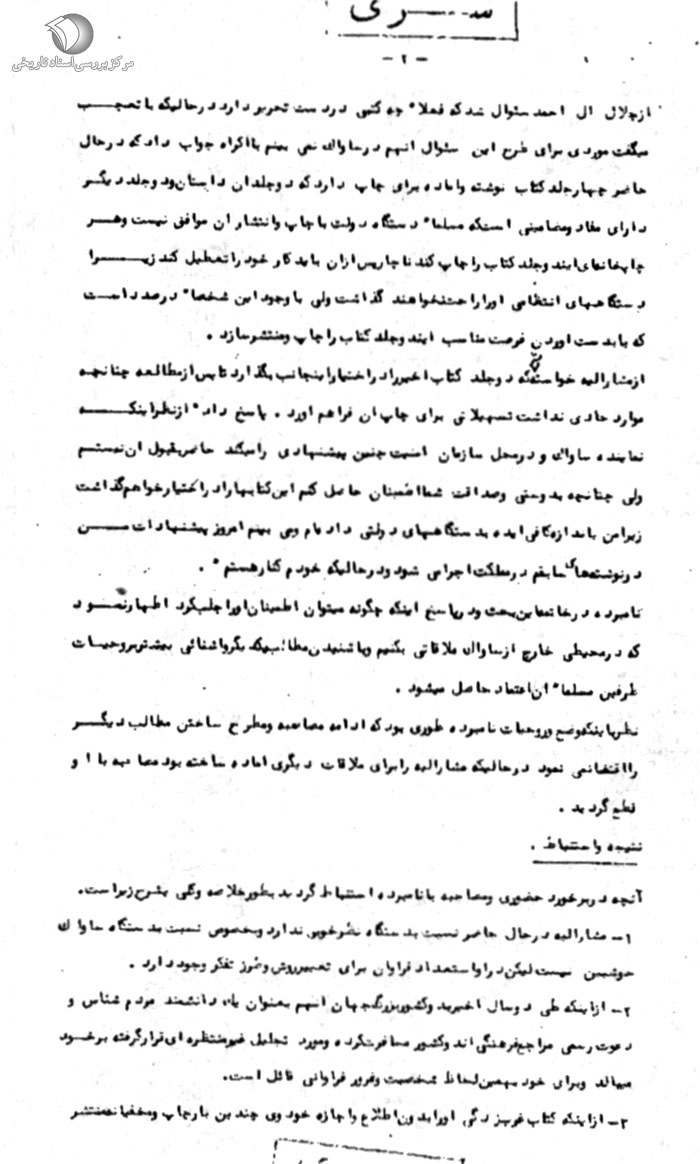 سری
مرکز بررسی اسناد تاریخی
- ۲ -
از جلال ال احمد سئوال شد که فعلا" چه کتبی در دست تحریر دارد در حالیکه با تعجب
میگفت موردی برای طرح این سئوال انهم در ساواک نمی بینم با اکراه جواب داد که در حال
حاضر چهار جلد کتاب نوشته و اماده برای چاپ دارد که دو جلد ان داستان و دو جلد دیگر
دارای مفاد و مضامینی استکه مسلما" دستگاه دولت با چاپ و انتشار ان موافق نیست و هر
چاپخانه‌ای ایندو جلد کتاب را چاپ کند ناچار پس از ان باید کار خود را تعطیل کند زیرا
دستگاههای انتظامی او را راحت نخواهند گذاشت ولی با وجود این شخصا" در صدد است
که با بدست اوردن فرصت مناسب ایندو جلد کتاب را چاپ و منتشر سازد .
از مشارالیه خواسته شد دو جلد کتاب اخیر را در اختیار اینجانب بگذارد تا پس از مطالعه چنانچه
موارد حادی نداشت تسهیلاتی برای چاپ ان فراهم اورد . پاسخ داد " از نظر اینکه
نماینده ساواک و در محل سازمان امنیت چنین پیشنهادی را میکند حاضر بقبول ان نیستم
ولی چنانچه بدوستی و صداقت شما اطمینان حاصل کنم این کتابها را در اختیار خواهم گذاشت
زیرا من باندازه کافی ایده بدستگاههای دولتی داده‌ام و می بینم امروز پیشنهادات من
در نوشته‌های سابقم در مملکت اجرا می شود و در حالیکه خودم کنار هستم " .
نامبرده در خاتمه این بحث و در پاسخ اینکه چگونه میتوان اطمینان او را جلب کرد اظهار نمود
که در محیطی خارج از ساواک ملاقاتی بکنیم و با شنیدن مطالب یکدیگر و اشنائی بیشتر بروحیات
طرفین مسلما" ان اعتماد حاصل میشود .
نظر باینکه وضع و روحیات نامبرده طوری بود که ادامه مصاحبه و مطرح ساختن مطالب دیگر
را اقتضا نمی نمود در حالیکه مشارالیه را برای ملاقات دیگری اماده ساخته بود مصاحبه با او
قطع گردید .
نتیجه و استنباط .
آنچه در برخورد حضوری و مصاحبه با نامبرده استنباط گردید بطور خلاصه و کلی بشرح زیر است.
۱- مشارالیه در حال حاضر نسبت بدستگاه نظر خوبی ندارد و بخصوص نسبت بدستگاه ساواک
خوشبین نیست لیکن در او استعداد فراوان برای تعبیر روش و طرز تفکر وجود دارد .
۲- از اینکه طی دو سال اخیر بدو کشور بزرگ جهان انهم بعنوان یک دانشمند مردم شناس و
دعوت رسمی مراجع فرهنگی اندو کشور مسافرت کرده و مورد تجلیل غیر منتظره ای قرار گرفته بر خود
میبالد و برای خود بهمین لحاظ شخصیت و غرور فراوانی قائل است.
۳- از اینکه کتاب غربزدگی او را بدون اطلاع و اجازه خود وی چندین بار چاپ و مخفیانه منتشر